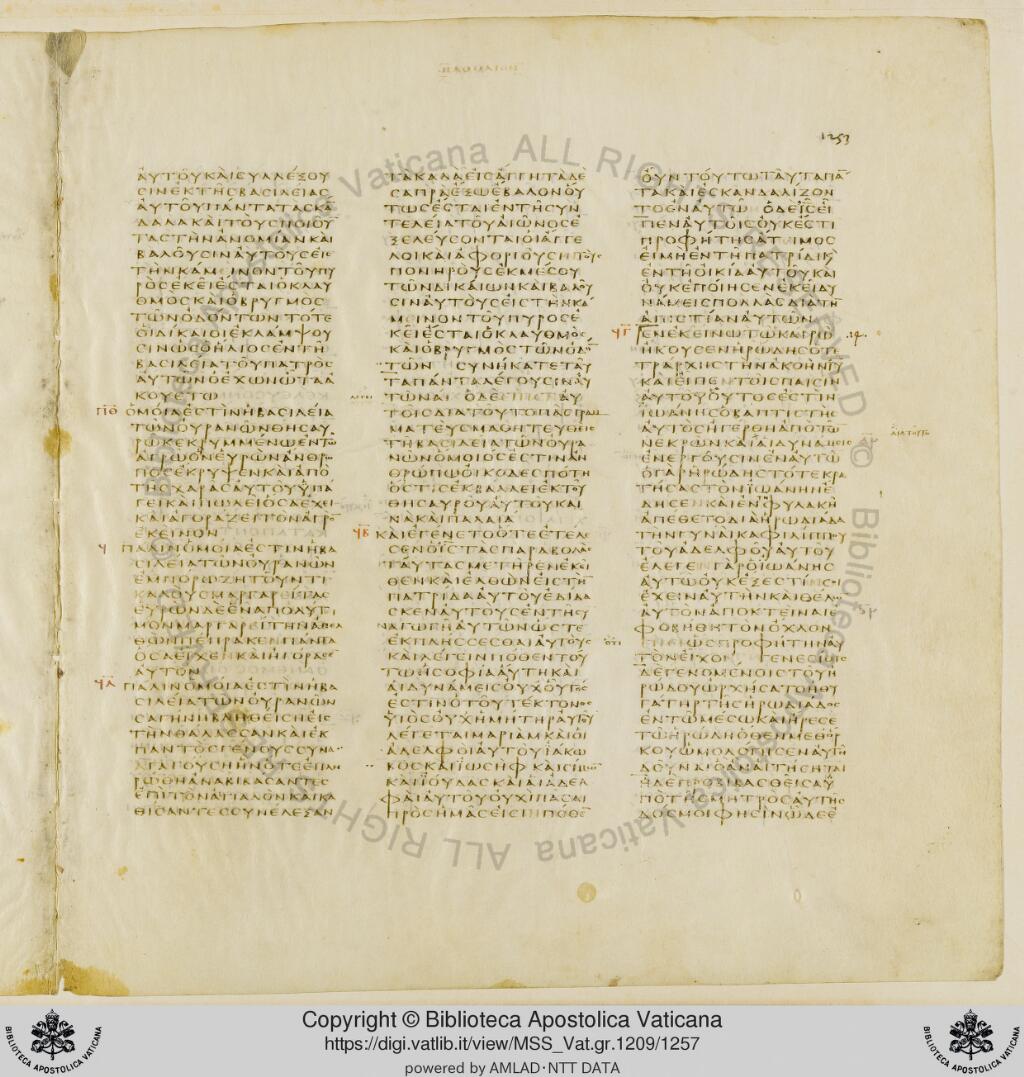 ΜΑΘΘΑΙΟΝ
1253
ΑΥΤΟΥ ΚΑΙ ΣΥΛΛΕΞΟΥ
ΣΙΝ ΕΚ ΤΗΣ ΒΑΣΙΛΕΙΑΣ
ΑΥΤΟΥ ΠΑΝΤΑ ΤΑ ΣΚΑ
ΔΑΛΑ ΚΑΙ ΤΟΥΣ ΠΟΙΟΥ
ΤΑΣ ΤΗΝ ΑΝΟΜΙΑΝ ΚΑΙ
ΒΑΛΟΥΣΙΝ ΑΥΤΟΥΣ ΕΙΣ
ΤΗΝ ΚΑΜΙΝΟΝ ΤΟΥ ΠΥ
ΡΟΣ ΕΚΕΙ ΕΣΤΑΙ Ο ΚΛΑΥ
ΘΜΟΣ ΚΑΙ Ο ΒΡΥΓΜΟΣ
ΤΩΝ ΟΔΟΝΤΩΝ ΤΟΤΕ
ΟΙ ΔΙΚΑΙΟΙ ΕΚΛΑΜΨΟΥ
ΣΙΝ ΩΣ Ο ΗΛΙΟΣ ΕΝ ΤΗ
ΒΑΣΙΛΕΙΑ ΤΟΥ ΠΑΤΡΟΣ
ΑΥΤΩΝ Ο ΕΧΩΝ ΩΤΑ Α
ΚΟΥΕΤΩ
ΟΜΟΙΑ ΕΣΤΙΝ Η ΒΑΣΙΛΕΙΑ
ΤΩΝ ΟΥΡΑΝΩΝ ΘΗΣΑΥ
ΡΩ ΚΕΚΡΥΜΜΕΝΩ ΕΝ ΤΩ
ΑΓΡΩ ΟΝ ΕΥΡΩΝ ΑΝΘΡΩ
ΠΟΣ ΕΚΡΥΨΕΝ ΚΑΙ ΑΠΟ
ΤΗΣ ΧΑΡΑΣ ΑΥΤΟΥ ΥΠΑ
ΓΕΙ ΚΑΙ ΠΩΛΕΙ ΟΣΑ ΕΧΕΙ
ΚΑΙ ΑΓΟΡΑΖΕΙ ΤΟΝ ΑΓΡΟ
ΕΚΕΙΝΟΝ
ΠΑΛΙΝ ΟΜΟΙΑ ΕΣΤΙΝ Η ΒΑ
ΣΙΛΕΙΑ ΤΩΝ ΟΥΡΑΝΩΝ
ΕΜΠΟΡΩ ΖΗΤΟΥΝΤΙ
ΚΑΛΟΥΣ ΜΑΡΓΑΡΕΙΤΑΣ
ΕΥΡΩΝ ΔΕ ΕΝΑ ΠΟΛΥΤΙ
ΜΟΝ ΜΑΡΓΑΡΕΙΤΗΝ ΑΠΕΛ
ΘΩΝ ΠΕΠΡΑΚΕΝ ΠΑΝΤΑ
ΟΣΑ ΕΙΧΕΝ ΚΑΙ ΗΓΟΡΑΣΕ
ΑΥΤΟΝ
ΠΑΛΙΝ ΟΜΟΙΑ ΕΣΤΙΝ Η ΒΑ
ΣΙΛΕΙΑ ΤΩΝ ΟΥΡΑΝΩΝ
ΣΑΓΗΝΗ ΒΛΗΘΕΙΣΗ ΕΙΣ
ΤΗΝ ΘΑΛΑΣΣΑΝ ΚΑΙ ΕΚ
ΠΑΝΤΟΣ ΓΕΝΟΥΣ ΣΥΝΑ
ΓΑΓΟΥΣΗ ΗΝ ΟΤΕ ΕΠΛΗ
ΡΩΘΗ ΑΝΑΒΙΒΑΣΑΝΤΕΣ
ΕΠΙ ΤΟΝ ΑΙΓΙΑΛΟΝ ΚΑΙ ΚΑ
ΘΙΣΑΝΤΕΣ ΣΥΝΕΛΕΞΑΝ
ΤΑ ΚΑΛΑ ΕΙΣ ΑΓΓΗ ΤΑ ΔΕ
ΣΑΠΡΑ ΕΞΩ ΕΒΑΛΟΝ ΟΥ
ΤΩΣ ΕΣΤΑΙ ΕΝ ΤΗ ΣΥΝ
ΤΕΛΕΙΑ ΤΟΥ ΑΙΩΝΟΣ Ε
ΞΕΛΕΥΣΟΝΤΑΙ ΟΙ ΑΓΓΕ
ΛΟΙ ΚΑΙ ΑΦΟΡΙΟΥΣΙ ΤΟΥΣ
ΠΟΝΗΡΟΥΣ ΕΚ ΜΕΣΟΥ
ΤΩΝ ΔΙΚΑΙΩΝ ΚΑΙ ΒΑΛΟΥ
ΣΙΝ ΑΥΤΟΥΣ ΕΙΣ ΤΗΝ ΚΑ
ΜΕΙΝΟΝ ΤΟΥ ΠΥΡΟΣ Ε
ΚΕΙ ΕΣΤΑΙ Ο ΚΛΑΥΘΜΟΣ
ΚΑΙ Ο ΒΡΥΓΜΟΣ ΤΩΝ ΟΔΟ
ΤΩΝ ΣΥΝΗΚΑΤΕ ΤΑΥ
ΤΑ ΠΑΝΤΑ ΛΕΓΟΥΣΙΝ ΑΥ
ΤΩ ΝΑΙ Ο ΔΕ ΕΙΠΕΝ ΑΥ
ΤΟΙΣ ΔΙΑ ΤΟΥΤΟ ΠΑΣ ΓΡΑΜ
ΜΑΤΕΥΣ ΜΑΘΗΤΕΥΘΕΙΣ
ΤΗ ΒΑΣΙΛΕΙΑ ΤΩΝ ΟΥΡΑ
ΝΩΝ ΟΜΟΙΟΣ ΕΣΤΙΝ ΑΝ
ΘΡΩΠΩ ΟΙΚΟΔΕΣΠΟΤΗ
ΟΣΤΙΣ ΕΚΒΑΛΛΕΙ ΕΚ ΤΟΥ
ΘΗΣΑΥΡΟΥ ΑΥΤΟΥ ΚΑΙ
ΝΑ ΚΑΙ ΠΑΛΑΙΑ
ΚΑΙ ΕΓΕΝΕΤΟ ΟΤΕ ΕΤΕΛΕ
ΣΕΝ Ο ΙΣ ΤΑΣ ΠΑΡΑΒΟΛΑΣ
ΤΑΥΤΑΣ ΜΕΤΗΡΕΝ ΕΚΕΙ
ΘΕΝ ΚΑΙ ΕΛΘΩΝ ΕΙΣ ΤΗ
ΠΑΤΡΙΔΑ ΑΥΤΟΥ ΕΔΙΔΑ
ΣΚΕΝ ΑΥΤΟΥΣ ΕΝ ΤΗ ΣΥ
ΝΑΓΩΓΗ ΑΥΤΩΝ ΩΣΤΕ
ΕΚΠΛΗΣΣΕΣΘΑΙ ΑΥΤΟΥΣ
ΚΑΙ ΛΕΓΕΙΝ ΠΟΘΕΝ ΤΟΥ
ΤΩ Η ΣΟΦΙΑ ΑΥΤΗ ΚΑΙ
ΑΙ ΔΥΝΑΜΕΙΣ ΟΥΧ ΟΥΤΟΣ
ΕΣΤΙΝ Ο ΤΟΥ ΤΕΚΤΟΝΟΣ
ΥΙΟΣ ΟΥΧ Η ΜΗΤΗΡ ΑΥΤΟΥ
ΛΕΓΕΤΑΙ ΜΑΡΙΑΜ ΚΑΙ ΟΙ
ΑΔΕΛΦΟΙ ΑΥΤΟΥ ΙΑΚΩ
ΒΟΣ ΚΑΙ ΙΩΣΗΦ ΚΑΙ ΣΙΜΩΝ
ΚΑΙ ΙΟΥΔΑΣ ΚΑΙ ΑΙ ΑΔΕΛ
ΦΑΙ ΑΥΤΟΥ ΟΥΧΙ ΠΑΣΑΙ
ΠΡΟΣ ΗΜΑΣ ΕΙΣΙΝ ΠΟΘΕ
ΟΥΝ ΤΟΥΤΩ ΤΑΥΤΑ ΠΑ
ΤΑ ΚΑΙ ΕΣΚΑΝΔΑΛΙΖΟΝ
ΤΟ ΕΝ ΑΥΤΩ Ο ΔΕ ΙΣ ΕΙ
ΠΕΝ ΑΥΤΟΙΣ ΟΥΚ ΕΣΤΙ
ΠΡΟΦΗΤΗΣ ΑΤΙΜΟΣ
ΕΙ ΜΗ ΕΝ ΤΗ ΠΑΤΡΙΔΙ Κ
ΕΝ ΤΗ ΟΙΚΙΑ ΑΥΤΟΥ ΚΑΙ
ΟΥΚ ΕΠΟΙΗΣΕΝ ΕΚΕΙ ΔΥ
ΝΑΜΕΙΣ ΠΟΛΛΑΣ ΔΙΑ ΤΗ
ΑΠΙΣΤΙΑΝ ΑΥΤΩΝ
ΕΝ ΕΚΕΙΝΩ ΤΩ ΚΑΙΡΩ
ΗΚΟΥΣΕΝ ΗΡΩΔΗΣ Ο ΤΕ
ΤΡΑΡΧΗΣ ΤΗΝ ΑΚΟΗΝ ΙΥ
ΚΑΙ ΕΙΠΕΝ ΤΟΙΣ ΠΑΙΣΙΝ
ΑΥΤΟΥ ΟΥΤΟΣ ΕΣΤΙΝ
ΙΩΑΝΗΣ Ο ΒΑΠΤΙΣΤΗΣ
ΑΥΤΟΣ ΗΓΕΡΘΗ ΑΠΟ ΤΩ
ΝΕΚΡΩΝ ΚΑΙ ΑΙ ΔΥΝΑΜΕΙΣ
ΕΝΕΡΓΟΥΣΙΝ ΕΝ ΑΥΤΩ
Ο ΓΑΡ ΗΡΩΔΗΣ ΤΟΤΕ ΚΡΑ
ΤΗΣΑΣ ΤΟΝ ΙΩΑΝΗΝ Ε
ΔΗΣΕΝ ΚΑΙ ΕΝ ΦΥΛΑΚΗ
ΑΠΕΘΕΤΟ ΔΙΑ ΗΡΩΔΙΑΔΑ
ΤΗΝ ΓΥΝΑΙΚΑ ΦΙΛΙΠΠΟΥ
ΤΟΥ ΑΔΕΛΦΟΥ ΑΥΤΟΥ
ΕΛΕΓΕΝ ΓΑΡ Ο ΙΩΑΝΗΣ
ΑΥΤΩ ΟΥΚ ΕΞΕΣΤΙΝ ΣΟΙ
ΕΧΕΙΝ ΑΥΤΗΝ ΚΑΙ ΘΕΛΩ
ΑΥΤΟΝ ΑΠΟΚΤΕΙΝΑΙ Ε
ΦΟΒΗΘΗ ΤΟΝ ΟΧΛΟΝ
ΩΣ ΠΡΟΦΗΤΗΝ ΑΥ
ΤΟΝ ΕΙΧΟΝ ΓΕΝΕΣΙΟΙΣ
ΔΕ ΓΕΝΟΜΕΝΟΙΣ ΤΟΥ Η
ΡΩΔΟΥ ΩΡΧΗΣΑΤΟ Η ΘΥ
ΓΑΤΗΡ ΤΗΣ ΗΡΩΔΙΑΔΟΣ
ΕΝ ΤΩ ΜΕΣΩ ΚΑΙ ΗΡΕΣΕ
ΤΩ ΗΡΩΔΗ ΟΘΕΝ ΜΕΘ ΟΡ
ΚΟΥ ΩΜΟΛΟΓΗΣΕΝ ΑΥΤΗ
ΔΟΥΝΑΙ Ο ΑΝ ΑΙΤΗΣΗΤΑΙ
Η ΔΕ ΠΡΟΒΙΒΑΣΘΕΙΣΑ Υ
ΠΟ ΤΗΣ ΜΗΤΡΟΣ ΑΥΤΗΣ
ΔΟΣ ΜΟΙ ΦΗΣΙΝ ΩΔΕ Ε
Copyright © Biblioteca Apostolica Vaticana
https://digi.vatlib.it/view/MSS_Vat.gr.1209/1257
powered by AMLAD·NTT DATA